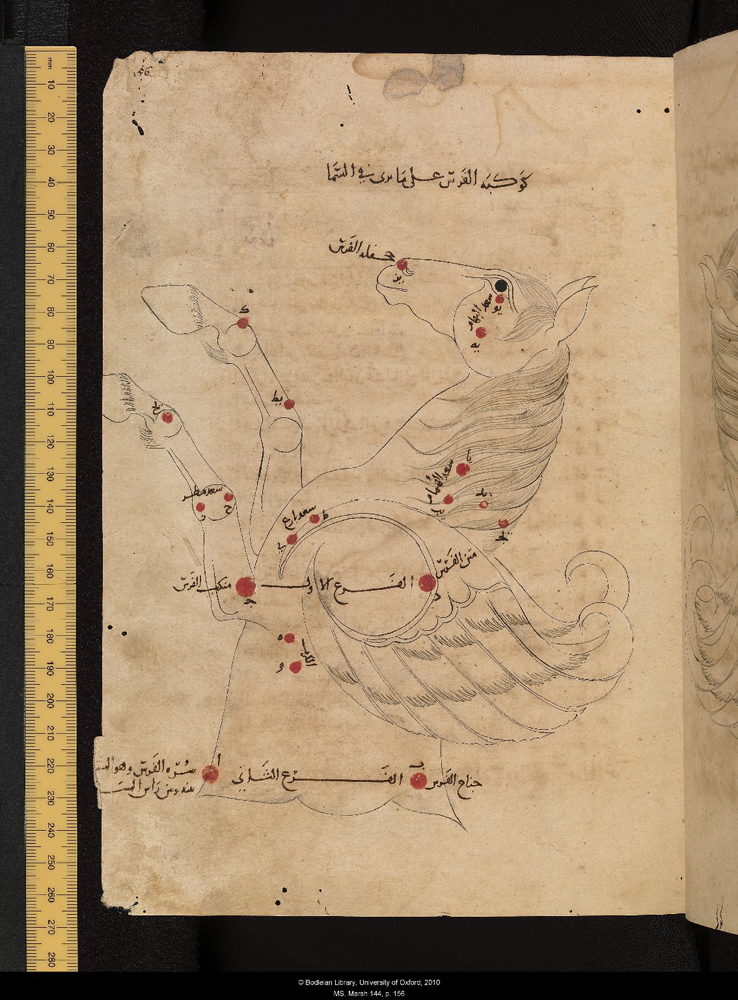 كوكبه الفرس على ما يرى في السما
جحفله الفرس
يز
سعد البهام
يو
يه
ك
يط
يح
سعد مطر
ح
سعد الهمام
يا
يب
يد
يج
سعد بارع
ط
ى
متن الفرس
د
الفرع الاول
منكب الفرس
ج
ه
الكرب
و
ا
ب
سره الفرس وهو المشـ
بينه وبين راس المسـ
الفرع الثاني
جناح الفرس
mm
10
20
30
40
50
60
70
80
90
100
110
120
130
140
150
160
170
180
190
200
210
220
230
240
250
260
270
280
© Bodleian Library, University of Oxford, 2010
MS. Marsh 144, p. 156